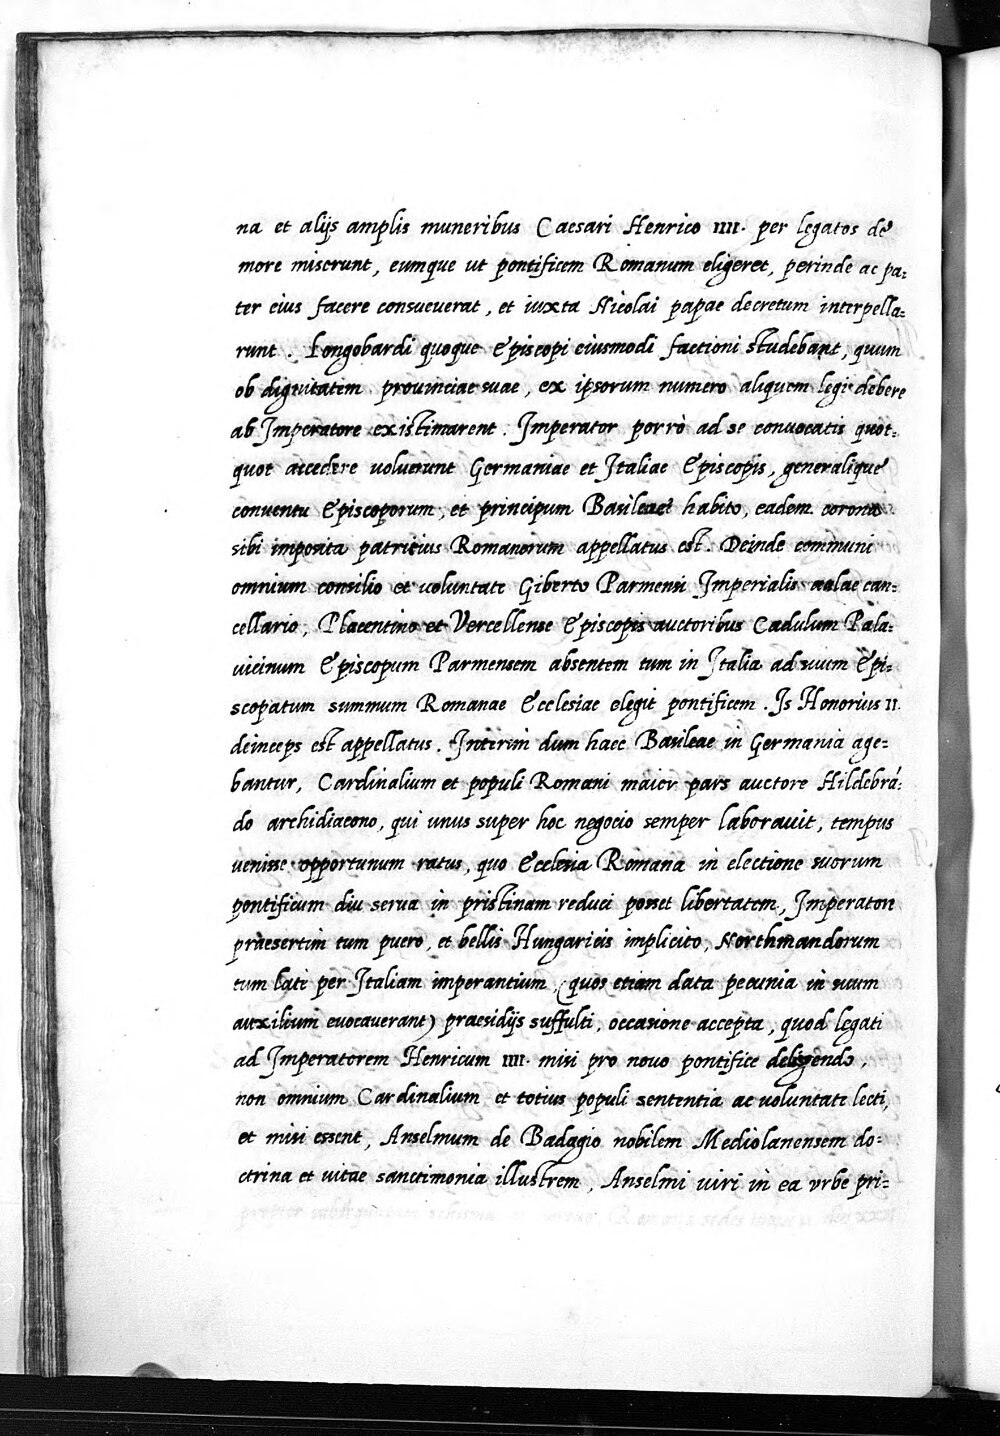 na et alijs amplis muneribus Caesari Henrico IIII. per legatos de
more miserunt, eumque ut pontificem Romanum eligeret, perinde ac pa=
ter eius facere consueverat, et iuxta Nicolai papae decretum interpella=
runt. Longobardi quoque Episcopi eiusmodi factioni studebant, quum
ob dignitatem provinciae suae, ex ipsorum numero aliquem legi debere
ab Imperatore existimarent. Imperator porrò ad se convocatis quot=
quot accedere voluerunt Germaniae et Italiae Episcopis, generalique
conventu Episcoporum, et principum Basileae habito, eadem corona
sibi imposita patricius Romanorum appellatus est. Deinde communi
omnium consilio et voluntate Giberto Parmensi Imperialis aulae can=
cellario, Placentino et Vercellense Episcopis auctoribus Cadulum Pala=
vicinum Episcopum Parmensem absentem tum in Italia ad suum Epi=
scopatum summum Romanae Ecclesiae elegit pontificem. Is Honorius II.
deinceps est appellatus. Interim dum haec Basileae in Germania age=
bantur, Cardinalium et populi Romani maior pars auctore Hildebrá=
do archidiacono, qui unus super hoc negocio semper laboravit, tempus
venisse opportunum ratus, quo Ecclesia Romana in electione suorum
pontificum diu serva in pristinam reduci posset libertatem, Imperatori
praesertim tum puero, et bellis Hungaricis implicito, Northmandorum
tum lati per Italiam imperantium, (quos etiam data pecunia in suum
auxilium evocaverant) praesidijs suffulti, occasione accepta, quod legati
ad Imperatorem Henricum IIII. misi pro novo pontifice deligendo,
non omnium Cardinalium et totius populi sententia ac voluntate lecti,
et misi essent, Anselmum de Badagio nobilem Mediolanensem do=
ctrina et vitae sanctimonia illustrem, Anselmi viri in ea urbe pri=